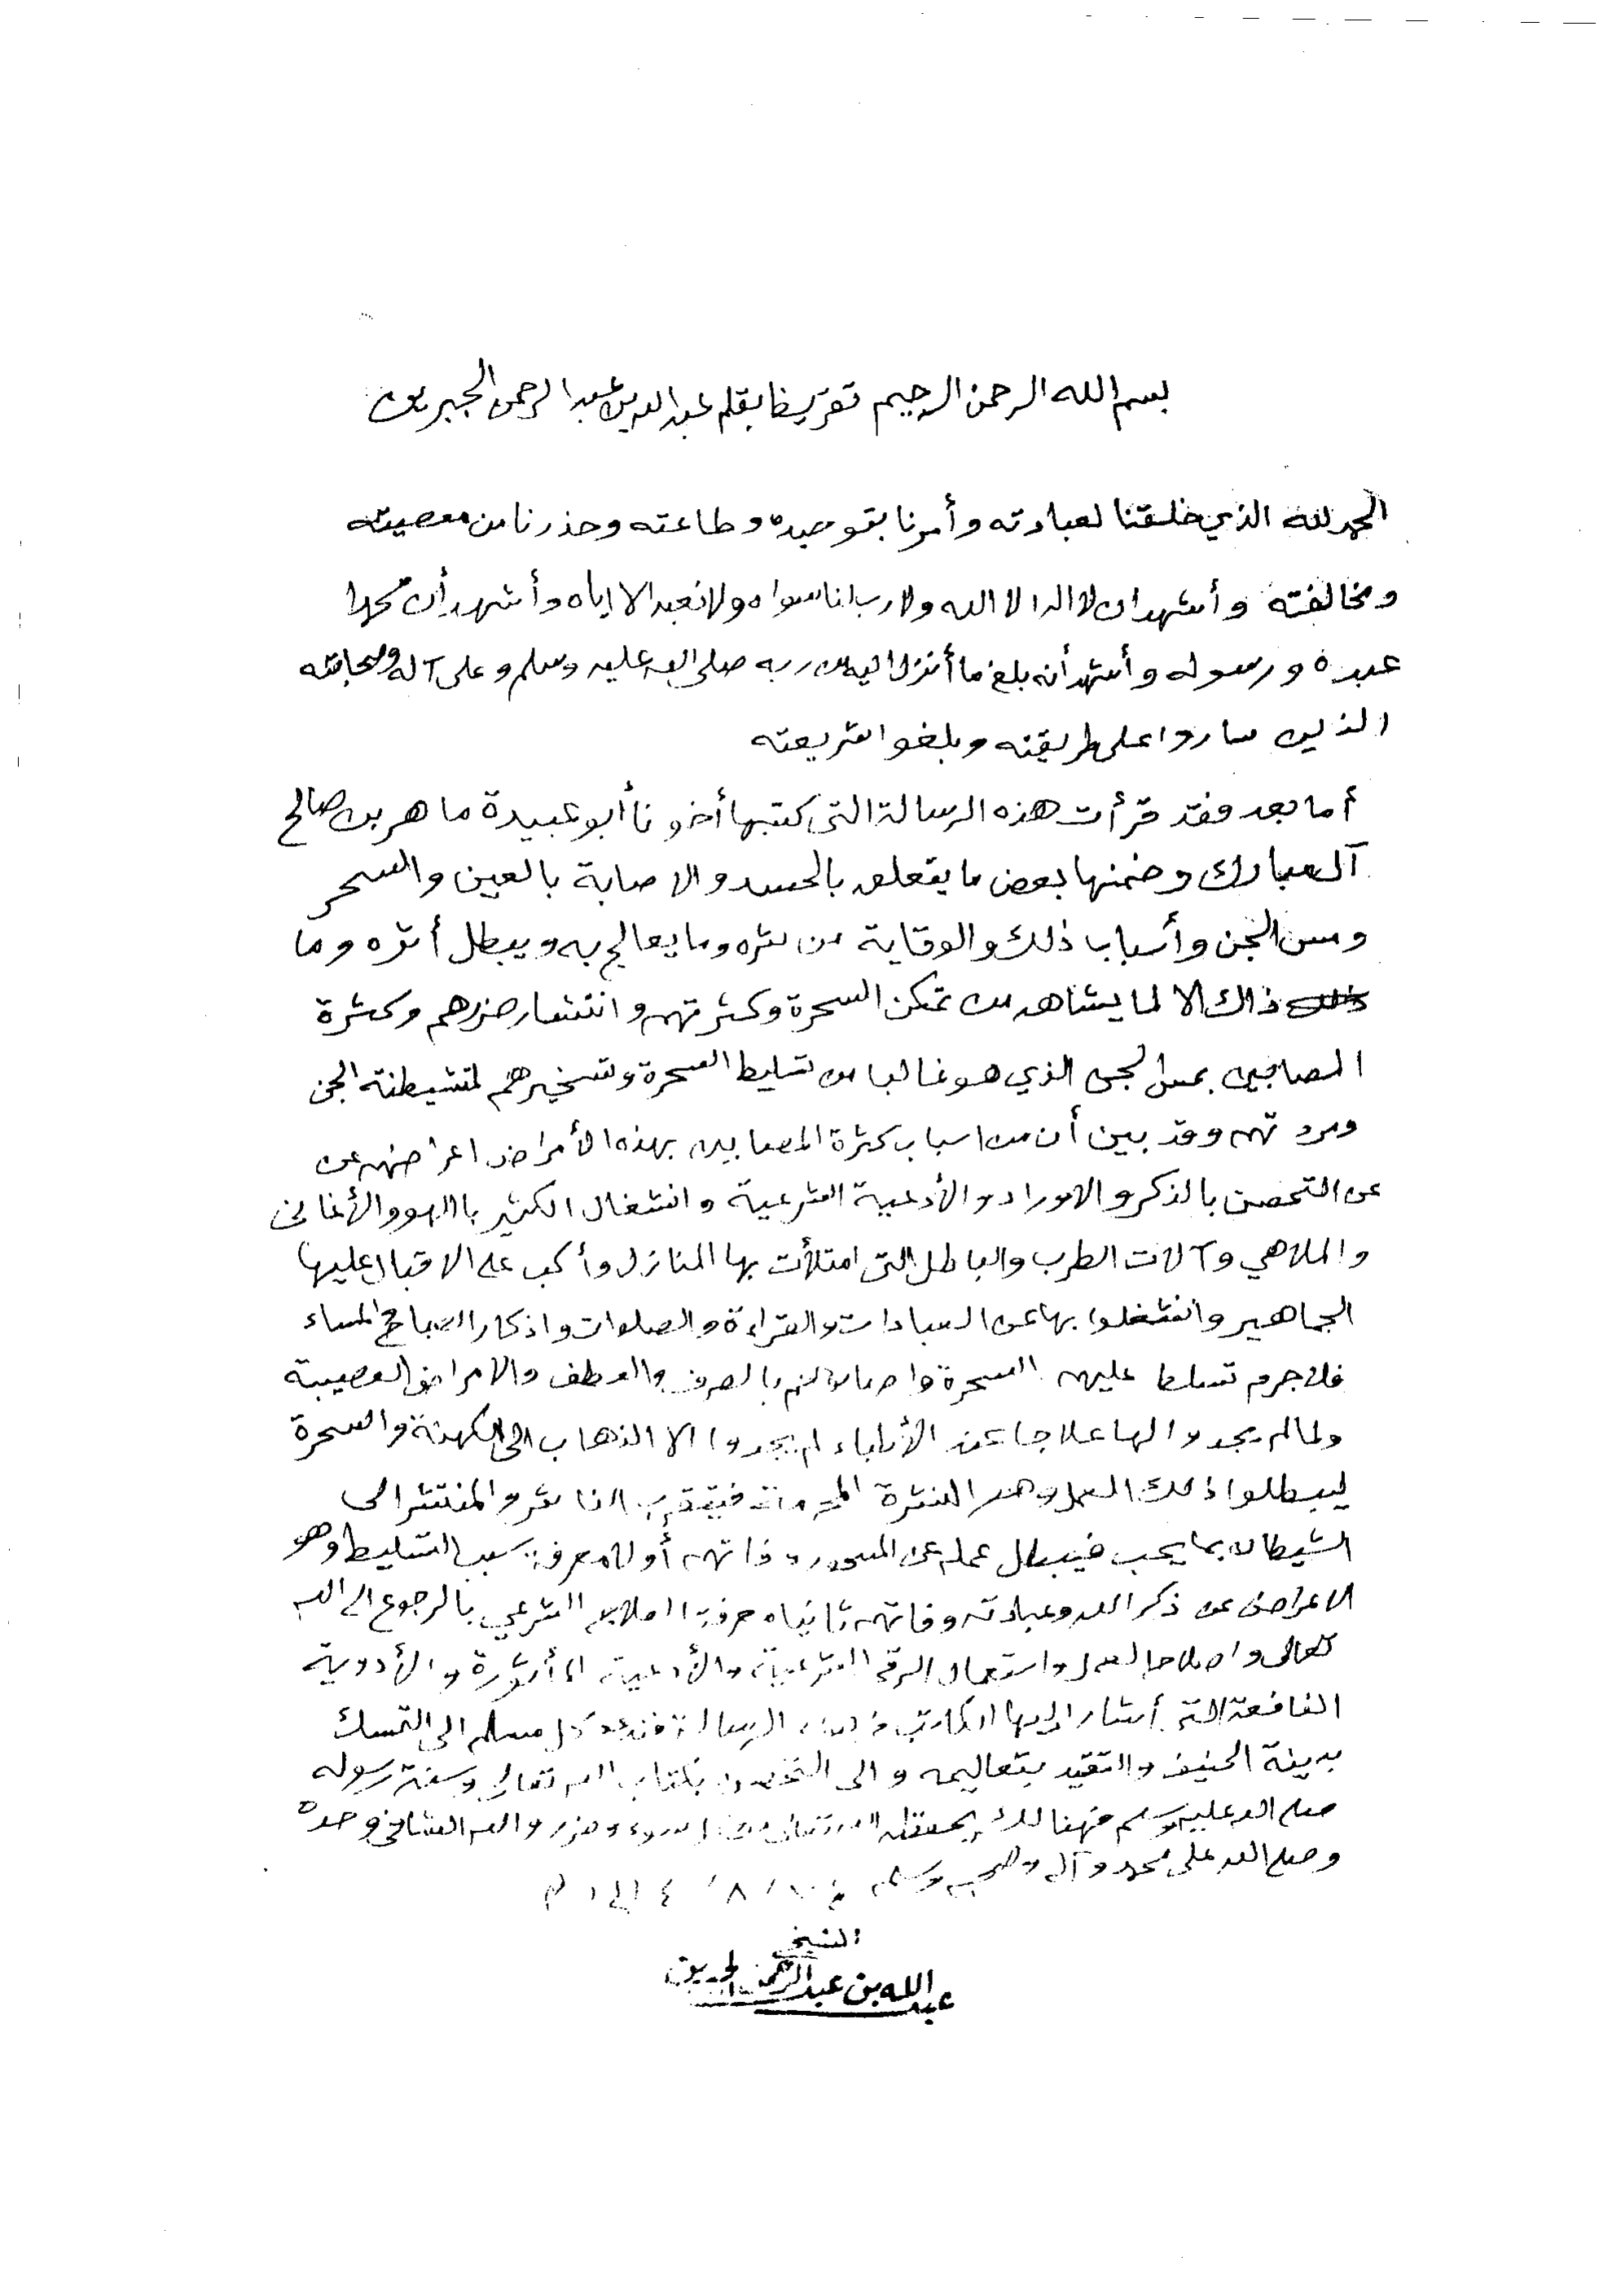 بسم الله الرحمن الرحيم تقريظ بقلم عبد الله بن عبد الرحمن الجبرين
الحمد لله الذي خلقنا لعبادته وأمرنا بتوحيده وطاعته وحذرنا من معصيته
ومخالفته وأشهد ان لا اله الا الله ولا رب لنا سواه ولا نعبد الا اياه وأشهد أن محمدا
عبده ورسوله وأشهد أنه بلغ ما أنزل اليه من ربه صلى الله عليه وسلم وعلى آله وصحابته
الذين ساروا على طريقته وبلغوا شريعته
أما بعد فقد قرأت هذه الرسالة التي كتبها أخونا أبو عبيدة ماهر بن صالح
آل مبارك وضمنها بعض ما يتعلق بالحسد والاصابة بالعين والسحر
ومس الجن وأسباب ذلك والوقاية من شره وما يعالج به ويبطل أثره وما
ذاك الا لما يشاهد من تمكن السحرة وكثرتهم وانتشار ضررهم وكثرة
المصابين بمس الجن الذي هو غالبا من تسليط السحرة وتسخيرهم لشيطنة الجن
ومردتهم وقد بين أن من اسباب كثرة المصابين بهذه الأمراض اعراضهم عن
عن التحصن بالذكر والاوراد والأدعية الشرعية وانشغال الكثير باللهو والأغاني
والملاهي وآلات الطرب والباطل التي امتلأت بها المنازل وأكب على الاقبال عليها
الجماهير وانشغلوا بها عن العبادات والقراءة والصلوات واذكار الصباح والمساء
فلا جرم تسلط عليهم السحرة واصابوهم بالصرف والعطف والامراض العصيبة
ولما لم يجدوا لها علاجا عند الأطباء لم يجدوا الا الذهاب الى الكهنة والسحرة
ليبطلوا ذلك العمل وهي النشرة المحرمة فيتقرب الناشر والمنتشر الى
الشيطان بما يحب فيبطل عمله عن المسحور وفاتهم أولا معرفة سبب التسليط وهو
الاعراض عن ذكر الله وعبادته وفاتهم ثانيا معرفة العلاج الشرعي بالرجوع الى الله
تعالى واصلاح العمل واستعمال الرقى الشرعية والأدعية المأثورة والأدوية
النافعة التي أشار اليها الكاتب في هذه الرسالة فندعو كل مسلم الى التمسك
بدينه الحنيف والتقيد بتعاليمه والى التحصن بكتاب الله تعالى وسنة رسوله
صلى الله عليه وسلم فهنالك يحفظه الله تعالى من كل سوء وضرر والله الشافي وحده
وصلى الله على محمد وآله وصحبه وسلم
الشيخ
عبد الله بن عبد الرحمن الجبرين